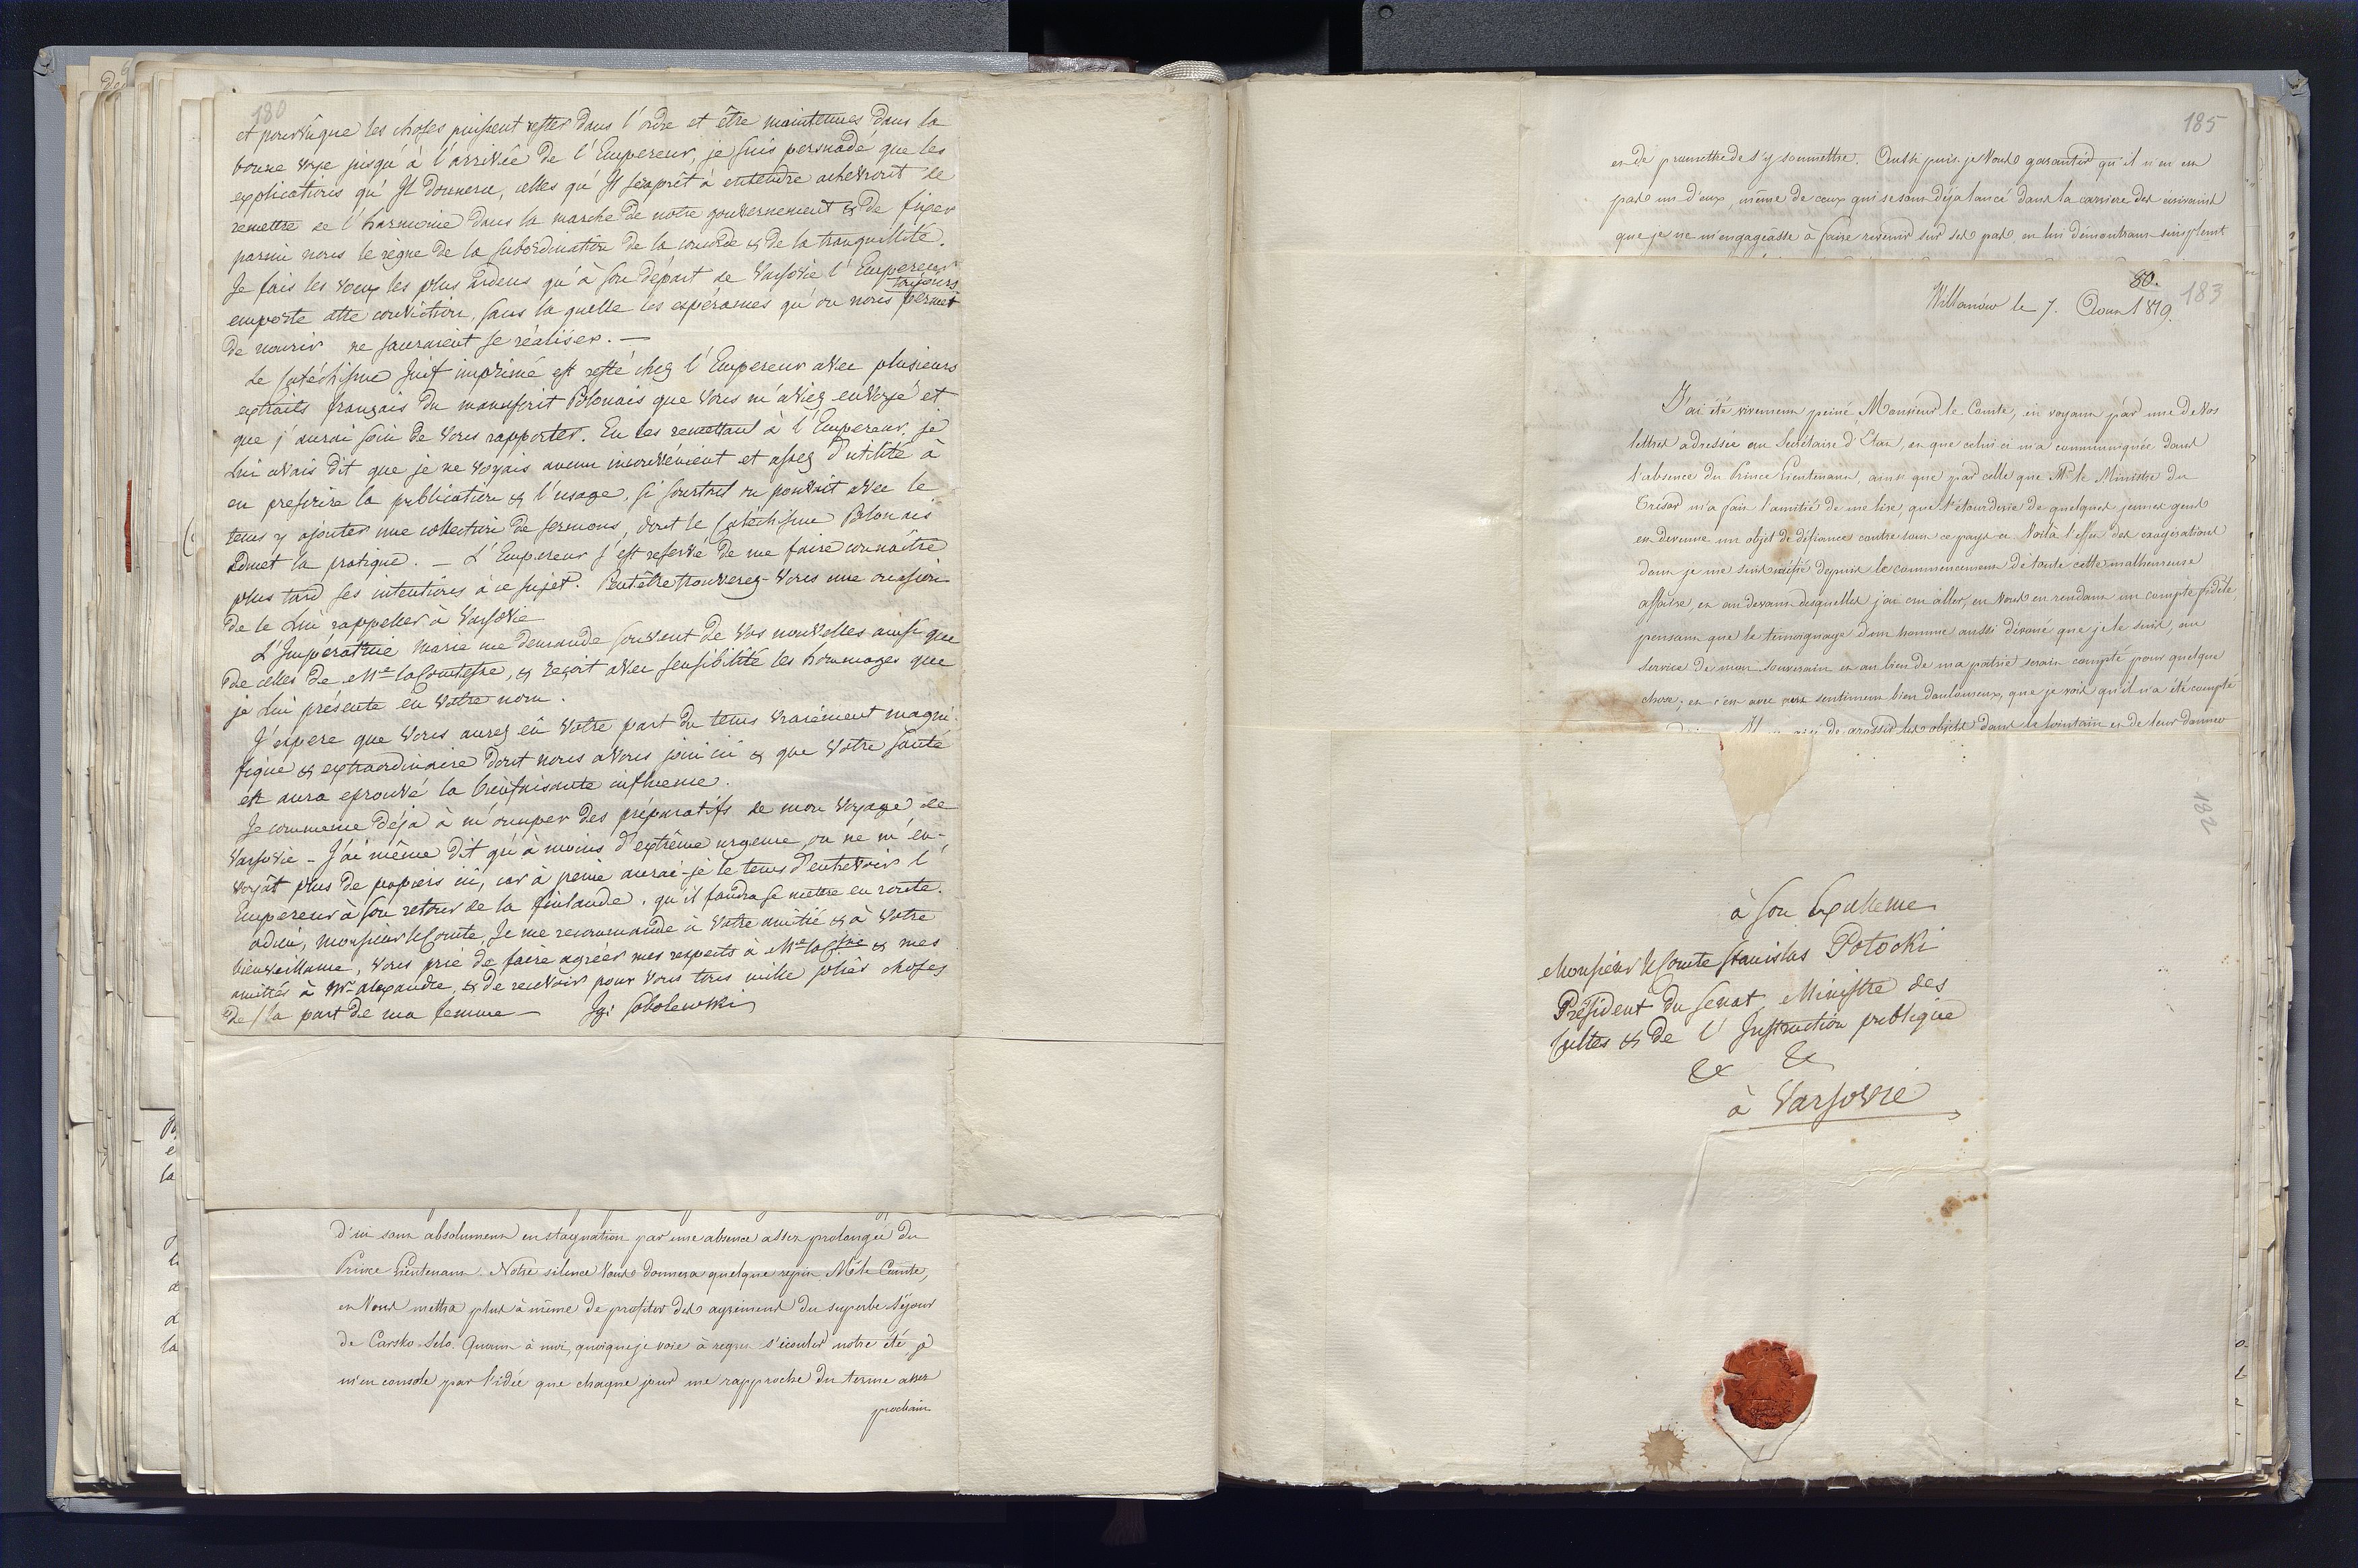 180
et pourvûque les choses puissent rester dans l'ordre et être maintenues dans la
bonne voye jusqu'à l'arrivée de l'Empereur, je suis persuadé que les
explications qu'Il donnera, celles qu'Il sera prêt à entendre acheveront de
remettre de l'harmonie dans la marche de notre gouvernement & de fixer
parmi nous le règne de la subordination de la concorde & de la tranquillité.
Je fais les voeux les plus ardens qu'à son départ de Varsovie l'Empereur
emporte cette conviction, sans la quelle les espérances qu'on nous permet toujours
de nourir ne sauraient se réaliser. —
Le Catéchisme Juif imprimé est resté chez l'Empereur avec plusieurs
extraits français du manuscrit Polonais que Vous m'aviez envoyé et
que j'aurai soin de Vous rapporter. En les remettant à l'Empereur, je
Lui avais dit que je ne voyais aucun inconvénient et assez d'utilité à
en prescrire la publication & l'usage, si surtout on pouvait avec le
tems y ajouter une collection de sermons, dont le Catéchisme Polonais
admet la pratique. — L'Empereur s'est reservé de me faire connaître
plus tard ses intentions à ce sujet. Peutêtre trouverez-Vous une occasion
de le Lui rappeller à Varsovie
L'Impératrice Marie me demande souvent de Vos nouvelles ainsi que
de celles de Me la Comtesse, & reçoit avec sensibilité les hommages que
je Lui présente en Votre nom.
J'espère que Vous aurez eû Votre part du tems vraiement magni-
fique & extraordinaire dont nous avons joui ici & que Votre santé
en aura eprouvé la bienfaisante influence.
Je commence déja à m'occuper des préparatifs de mon voyage de
Varsovie - J'ai même dit qu'à moins d'extrême urgence, on ne m'en-
voyât plus de papiers ici, car à peine aurai-je le tems d'entrevoir l'
Empereur à son retour de la finlande, qu'il faudra se mettre en route.
adieu, Monsieur le Comte, Je me recommande à Votre amitié & à Votre
bienveillance, Vous prie de faire agréer mes respects à Me la Csse & mes
amitiés à Mr Alexandre, & de recevoir pour Vous tous mille jolies choses
de la part de ma femme — Ig: Sobolewski
d'ici sont absolument en stagnation par une absence assez prolongée du
Prince Lieutenant. Notre silence Vous donnera quelque répit, Mr le Comte,
et Vous mettra plus à même de profiter des agrémens du superbe séjour
de Carsko-Selo. Quant à moi, quoique je voie à regret s'écouler notre été, je
m'en console par l'idée que chaque jour me rapproche du terme assez
prochain
185
et de promettre de s'y soumettre. Aussi puis-je Vous garantir qu'il n'en est
pas un d'eux, même de ceux qui se sont déja lancé dans la carriere des écrivains
que je ne m'engageâsse à faire revenir sur ses pas, en lui démontrant simplement
80.
183
Willanów le 7. Aout 1819.
J'ai été vivement peiné Monsieur le Comte, en voyant par une de Vos
lettres adressée au Secrétaire d'Etat, et que celui-ci m'a communiquée dans
l'absence du Prince Lieutenant, ainsi que par celle que Mr le Ministre du
Trésor m'a fait l'amitié de me lire, que l'étourderie de quelques jeunes gens
est devenue un objet de défiance contre tout ce pays-ci. Voilà l'effet des exagérations
dont je me suis méfié depuis le commencement de toute cette malheureuse
affaire, et au devant desquelles j'ai cru aller, en Vous en rendant un compte fidèle,
pensant que le témoignage d'un homme aussi dévoué que je le suis, au
service de mon souverain et au bien de ma patrie serait compté pour quelque
chose; et c'est avec un sentiment bien douloureux, que je vois qu'il n'a été compté
de grossir les objets dans le lointain et de leur donner
182
à Son Excellence
Monsieur le Comte Stanislas Potocki
Président du Senat, Ministre des
Cultes & de l'Instruction publique
&c &c
à Varsovie